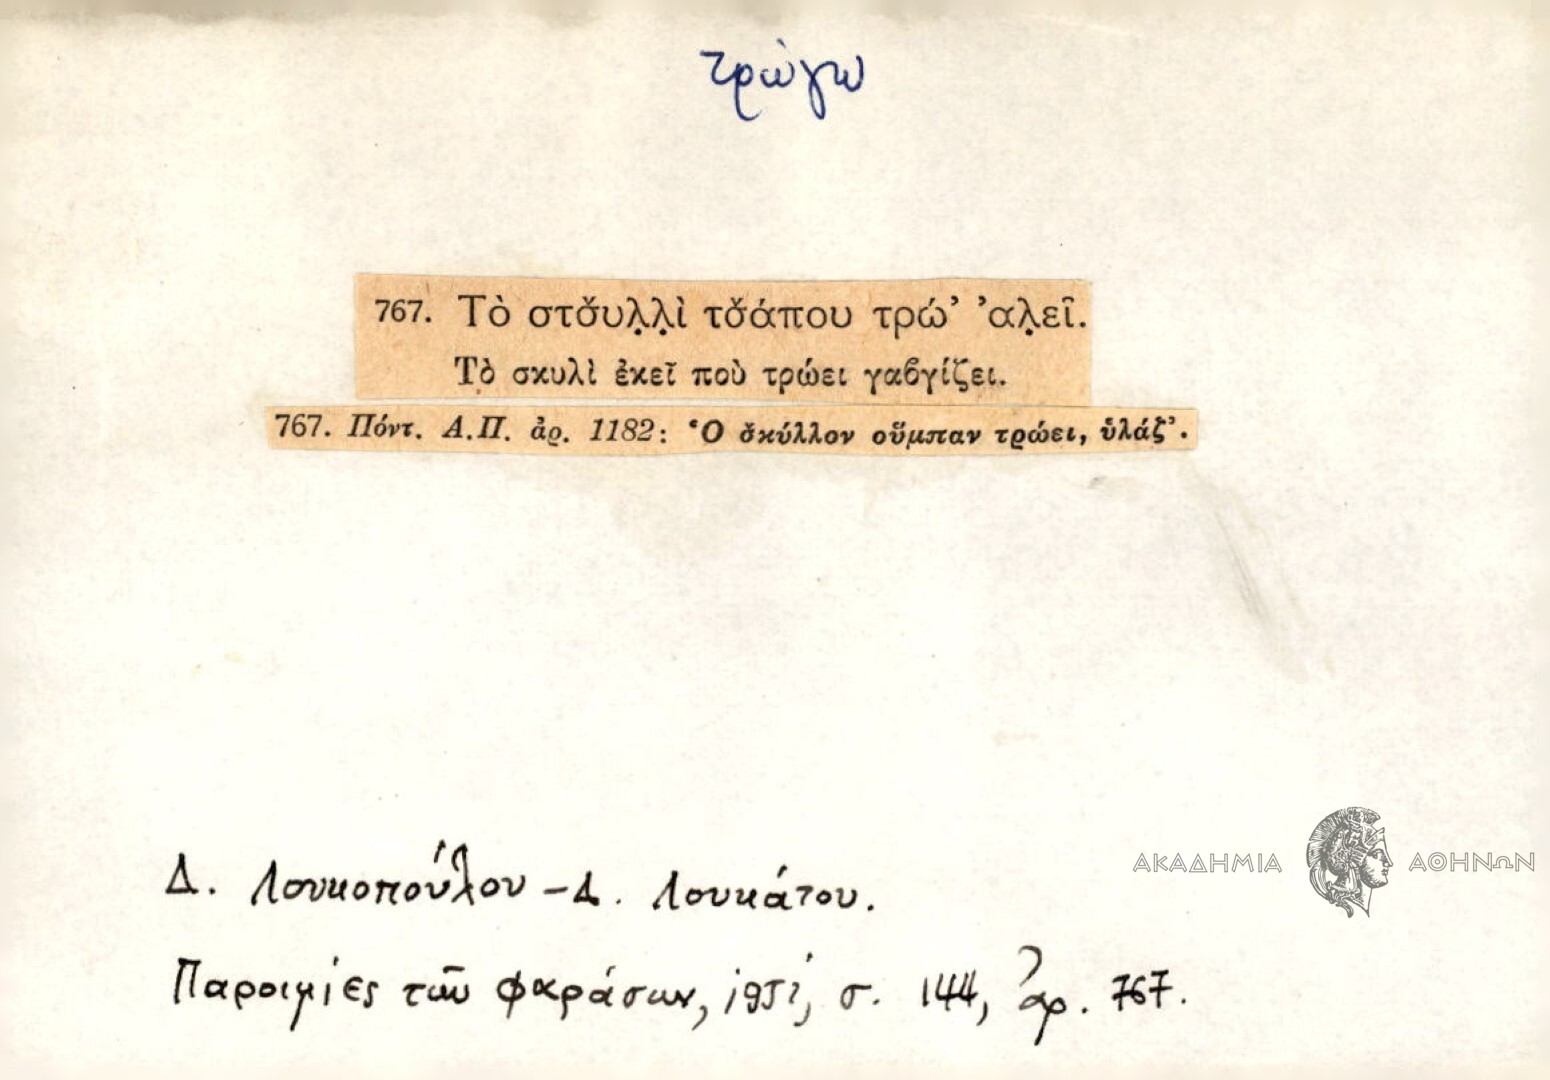 τρώγω
767. Τὸ στσ̌υλ̣λ̣ὶ τσ̌άπου τρώ’ ’αλ̣εῖ.
Τὸ σκυλὶ ἐκεῖ ποὺ τρώει γαβγίζει.
767. Πόντ. Α.Π. ἀρ. 1182: Ὁ σ̌κύλλον οὕμπαν τρώει, ὑλάζ’.
ΑΚΑΔΗΜΙΑ ΑΘΗΝΩΝ
Δ. Λουκοπούλου – Δ. Λουκάτου.
Παροιμίες τῶν Φαράσων, 1951, σ. 144, ἀρ. 767.